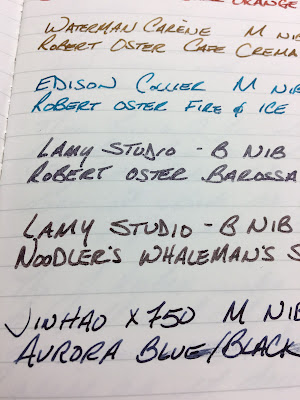 ORANGE
WATERMAN CARÈNE M NIB
ROBERT OSTER CAFE CREMA
EDISON COLLIER M NIB
ROBERT OSTER FIRE & ICE
LAMY STUDIO - B NIB
ROBERT OSTER BAROSSA
LAMY STUDIO - B NIB
NOODLER'S WHALEMAN'S S
JINHAO X750 M NIB
AURORA BLUE/BLACK